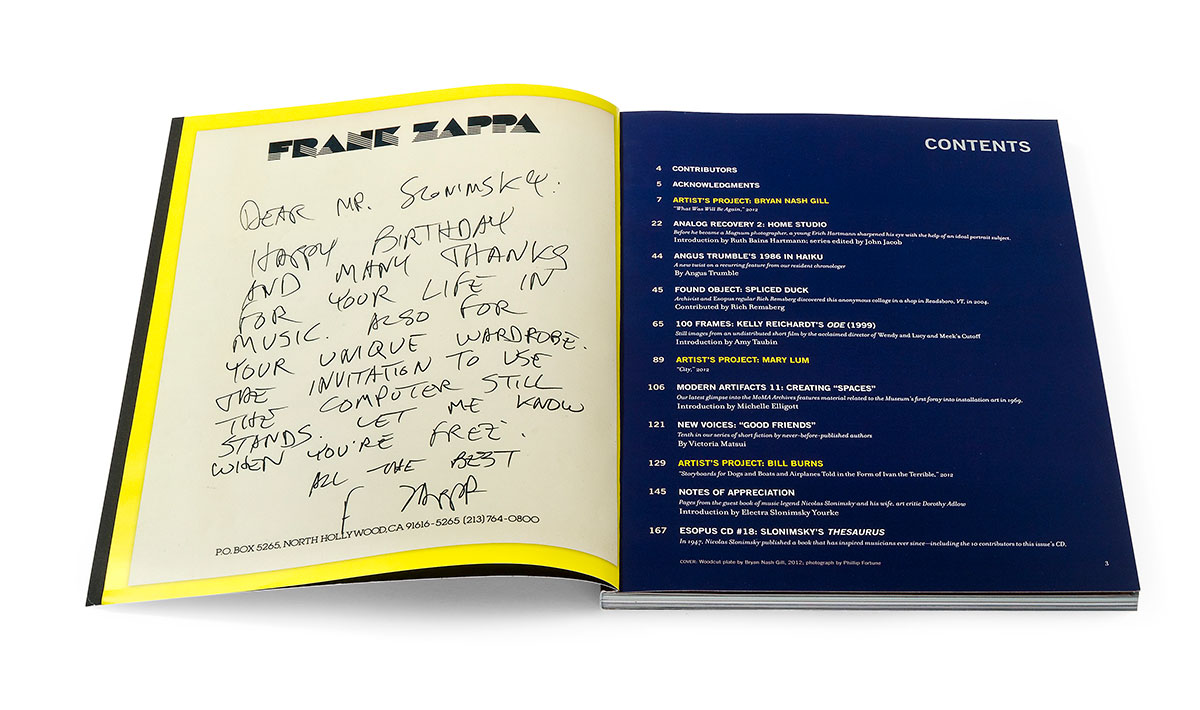 FRANK ZAPPA
DEAR MR. SLONIMSKY:
HAPPY BIRTHDAY
AND MANY THANKS
FOR YOUR LIFE IN
MUSIC. ALSO FOR
YOUR UNIQUE WARDROBE.
THE INVITATION TO USE
THE COMPUTER STILL
STANDS. LET ME KNOW
WHEN YOU'RE FREE.
ALL THE BEST
F ZAPPA
P.O. BOX 5265, NORTH HOLLYWOOD, CA 91616-5265 (213) 764-0800
CONTENTS
4 CONTRIBUTORS
5 ACKNOWLEDGMENTS
7 ARTIST'S PROJECT: BRYAN NASH GILL
"What Was Will Be Again," 2012
22 ANALOG RECOVERY 2: HOME STUDIO
Before he became a Magnum photographer, a young Erich Hartmann sharpened his eye with the help of an ideal portrait subject.
Introduction by Ruth Bains Hartmann; series edited by John Jacob
44 ANGUS TRUMBLE'S 1986 IN HAIKU
A new twist on a recurring feature from our resident chronologer
By Angus Trumble
45 FOUND OBJECT: SPLICED DUCK
Archivist and Esopus regular Rich Remsberg discovered this anonymous collage in a shop in Readsboro, VT, in 2004.
Contributed by Rich Remsberg
65 100 FRAMES: KELLY REICHARDT'S ODE (1999)
Still images from an undistributed short film by the acclaimed director of Wendy and Lucy and Meek's Cutoff
Introduction by Amy Taubin
89 ARTIST'S PROJECT: MARY LUM
"City," 2012
106 MODERN ARTIFACTS 11: CREATING "SPACES"
Our latest glimpse into the MoMA Archives features material related to the Museum's first foray into installation art in 1969.
Introduction by Michelle Elligott
121 NEW VOICES: "GOOD FRIENDS"
Tenth in our series of short fiction by never-before-published authors
By Victoria Matsui
129 ARTIST'S PROJECT: BILL BURNS
"Storyboards for Dogs and Boats and Airplanes Told in the Form of Ivan the Terrible," 2012
145 NOTES OF APPRECIATION
Pages from the guest book of music legend Nicolas Slonimsky and his wife, art critic Dorothy Adlow
Introduction by Electra Slonimsky Yourke
167 ESOPUS CD #18: SLONIMSKY'S THESAURUS
In 1947, Nicolas Slonimsky published a book that has inspired musicians ever since—including the 10 contributors to this issue's CD.
COVER: Woodcut plate by Bryan Nash Gill, 2012; photograph by Phillip Fortune
3